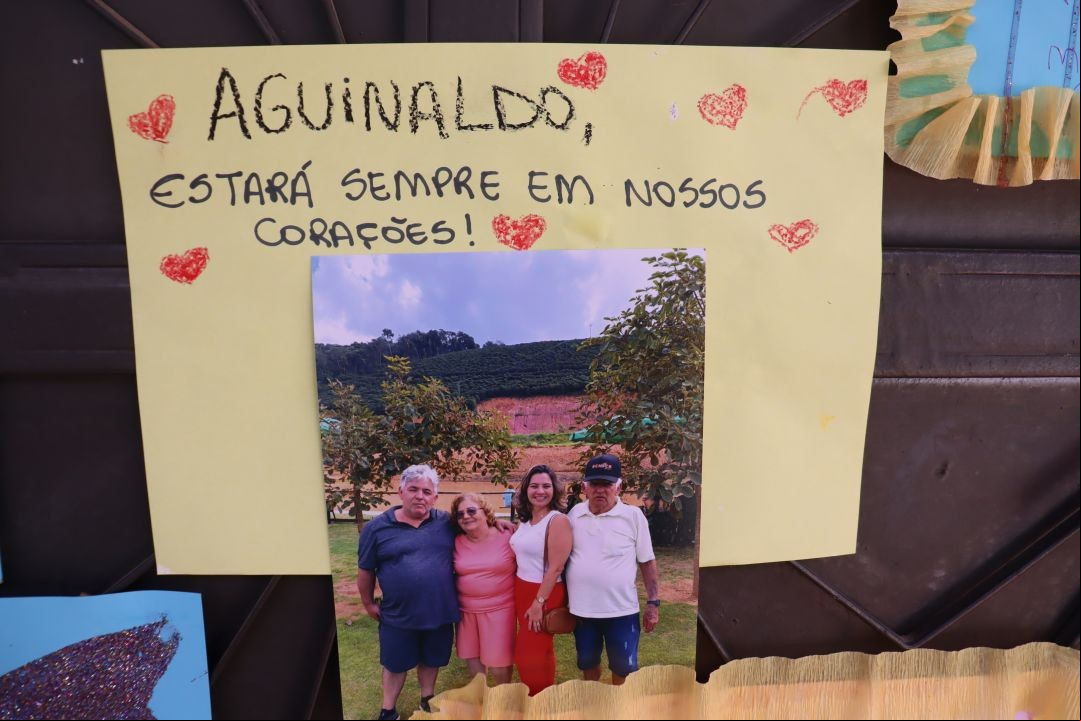 AGUINALDO,
ESTARÁ SEMPRE EM NOSSOS
CORAÇÕES!